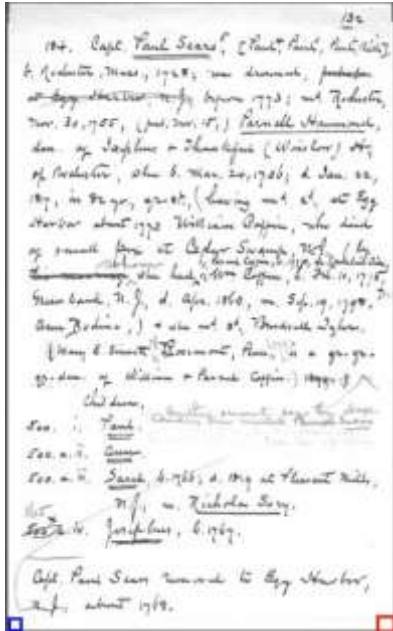 132
184. Capt. Paul Sears, [Paul, Paul, Paul,
b. Rochester, Mass., 1728; was drowned, perhaps
at Egg Harbor, N.J., before 1773; m. Rochester,
Nov. 30, 1755, (pub. Nov. 15,) Parnell Hammond,
dau. of Josephus + Thankful (Winslow) H
of Rochester, she b. Mar. 20, 1736; d. Jan. 22,
in 82 yr., (having m. at Egg
Harbor about 1773 William Coffin, who died
of small pox at Cedar Swamp, N.J. (by
whom she had Wm Coffin, b. Feb. 10, 1775,
Green bank, N.J., d. Apr. 1860, m. Sep. 19, 1798,
Ann Bodine,) + she m. 3d,
(Mary E. Rosemont, Penn., is a gr. gr.
gr. dau. of William + Parnell Coffin.)
Children,
500. i. Paul
500.a. ii. Anna
500.a. iii. Sarah, b. 1766; d. 1819 at Pleasant Mills,
N.J., m. Nicholas Sooy.
iv. Josephus, b. 1767.
Capt. Paul Sears removed to Egg Harbor,
N.J. about 1768.